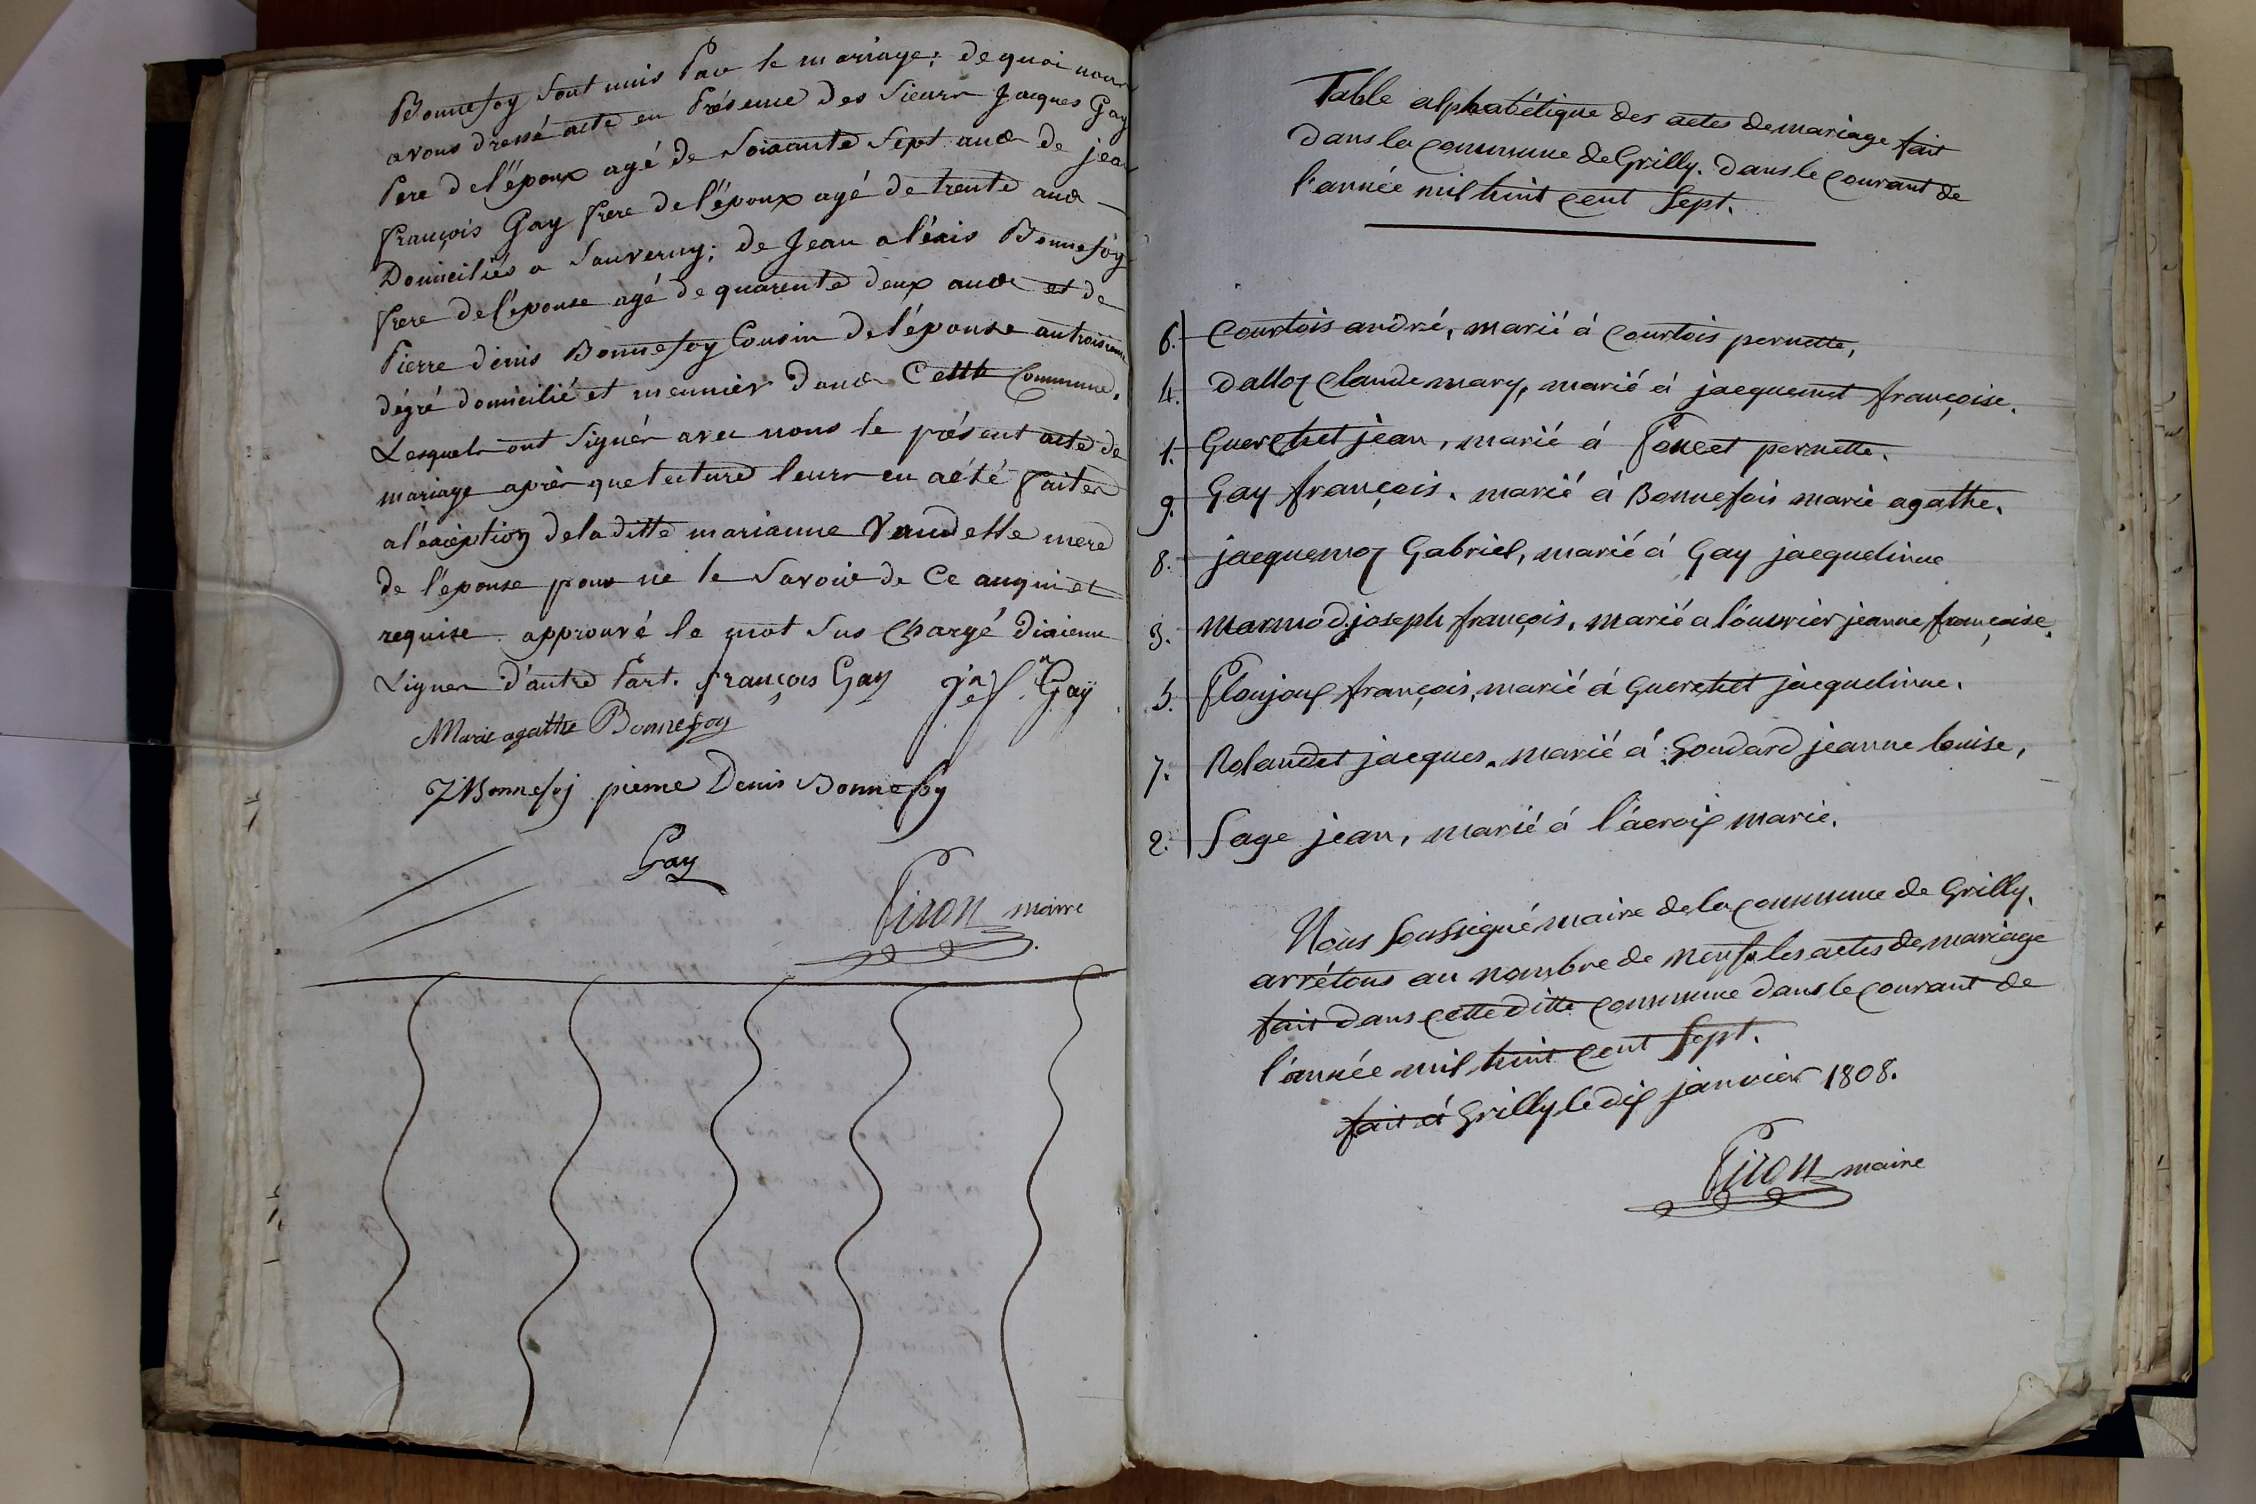 Bonnefoy sont unis Par le mariage; de quoi nous
avons dressé acte en Présence des Sieurs Jacques Gay
Pere de l'époux agé de Soixante Sept ans de jean
françois Gay frere de l'époux agé de trente ans
Domiciliés a Sauverny; de Jean aléxis Bonnefoy
frere de l'épouse agé de quarente deux ans et de
Pierre denis Bonnefoy Cousin de l'épouse au troisieme
dégré domicilié et meunier dans Cette Commune.
Lesquels ont Signér avec nous le présent acte de
mariage aprèr que lecture leurs en a été faiter
a l'éxception de la ditte marianne Vaudelle mere
de l'épouse pour ne le Savoir de Ce enquis et
requise. approuvé le mot Sus Chargé dixieme
Ligner d'autre Part. françois Gay jn f.n Gaÿ
Marie agathe Bonnefoy
JABonnefoj pierre Denis Bonnefoy
Gay
Piron maire
Table alphabétique des actes de mariage fait
dans la commune de Grilly. dans le courant de
l'année mil huit cent Sept.
6. Courtois andré, marié á Courtois pernette,
4. dalloz Claude mary, marié á jacquemet françoise.
1. Guerchet jean, marié á Poncet pernette.
9. Gay françois. marié á Bonnefois marie agathe.
8. jacquemoz Gabriel, marié á Gay jacquelinne
3. Marmod joseph françois, marié a l'ouvrier jeanne françoise.
5. Ploujoux françois, marié á Guerchet jacquelinne.
7. Rolandet jacques. marié á Goudard jeanne louise,
2. Sage jean, marié á l'ácroix marie.
Nous Soussigné maire de la commune de Grilly,
arrétons au nombre de neuf les actes de mariage
fait dans cette ditte commune dans le courant de
l'année mil huit cent Sept.
fait á Grilly le dix janvier 1808.
Piron maire